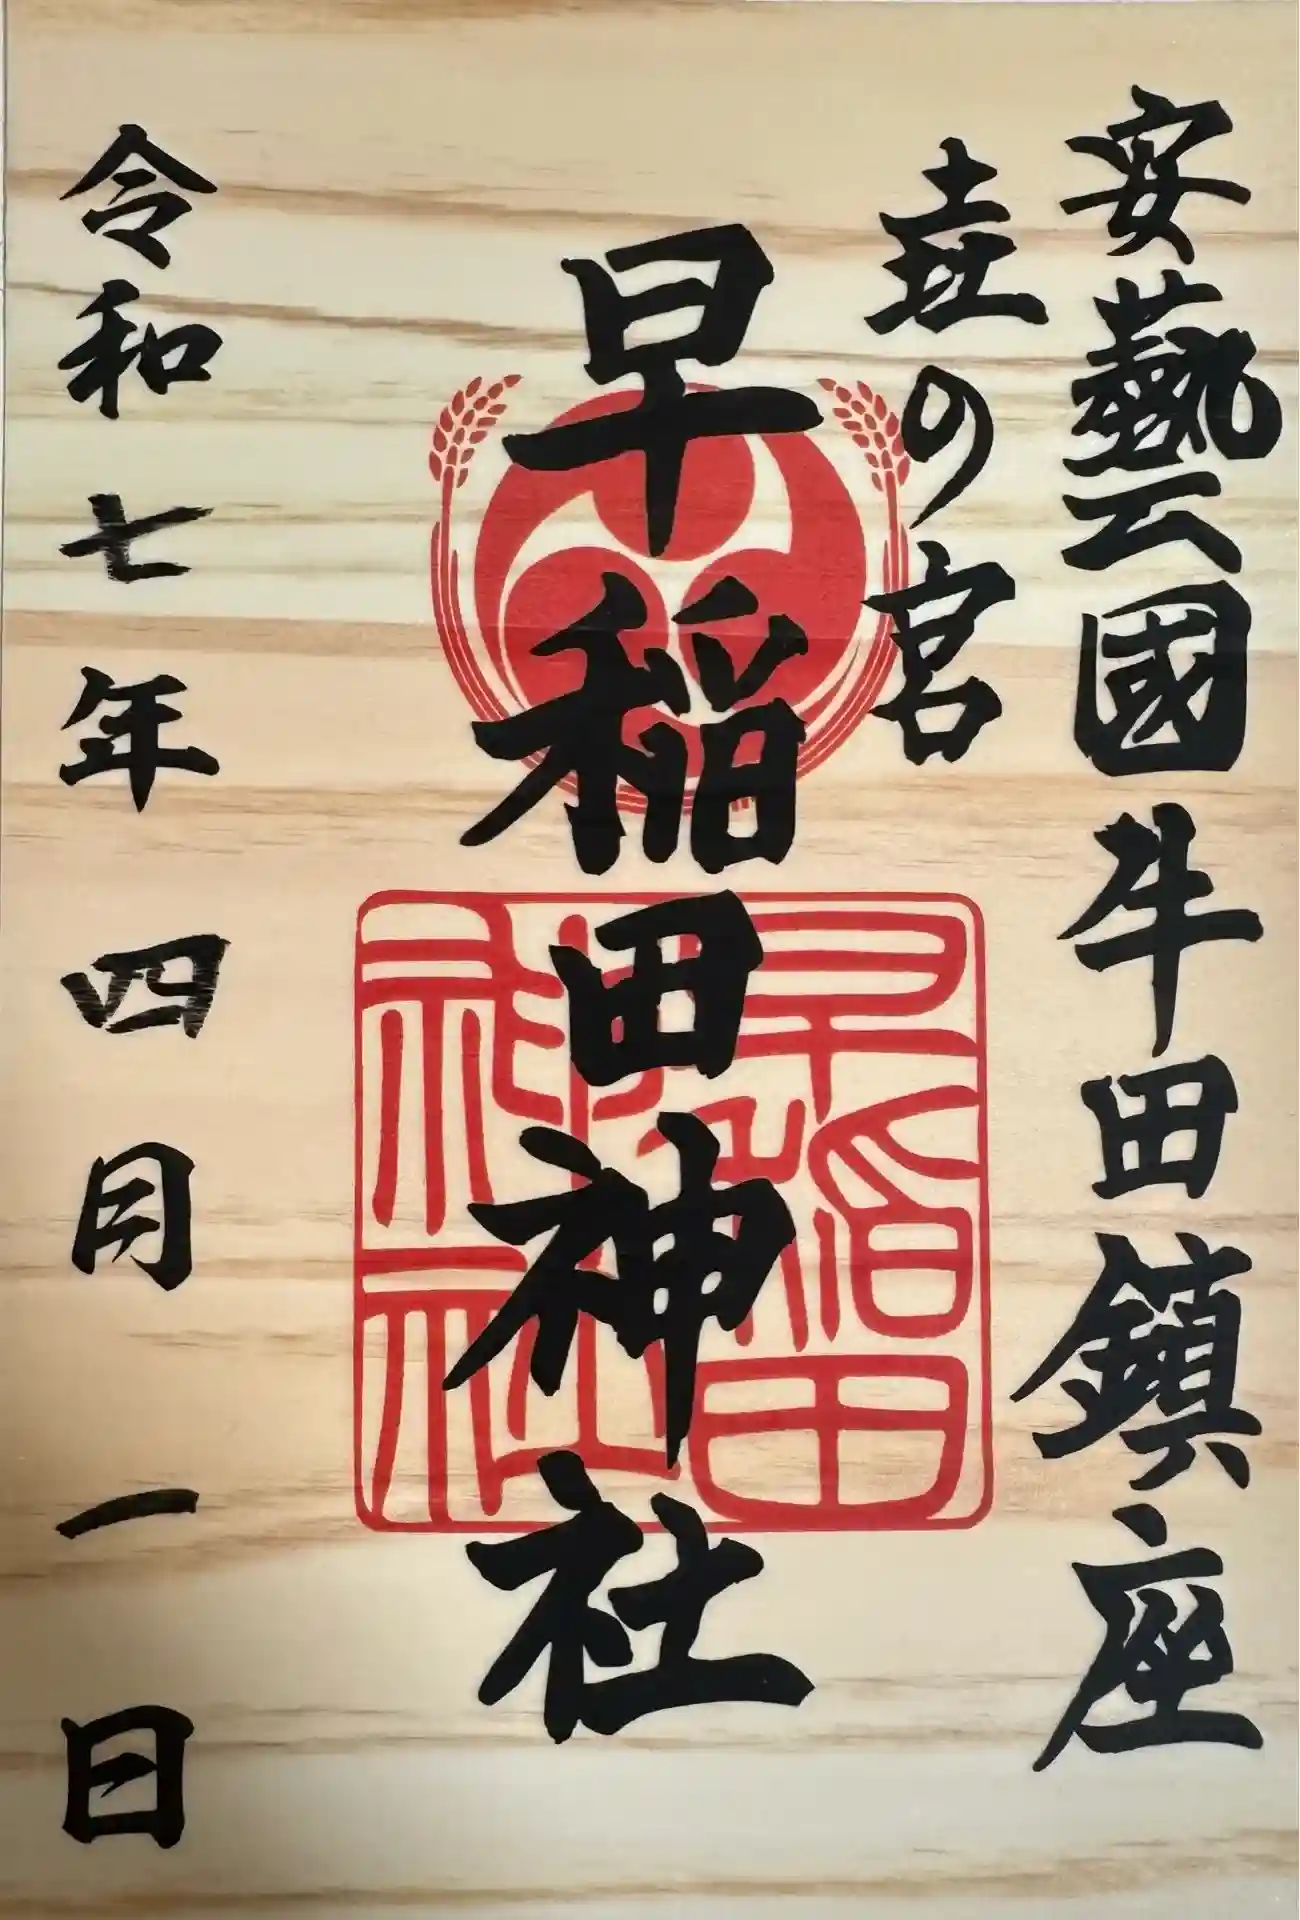 安藝國牛田鎮座
壺の宮
早稲田神社
早稲田
神社
令和七年四月一日